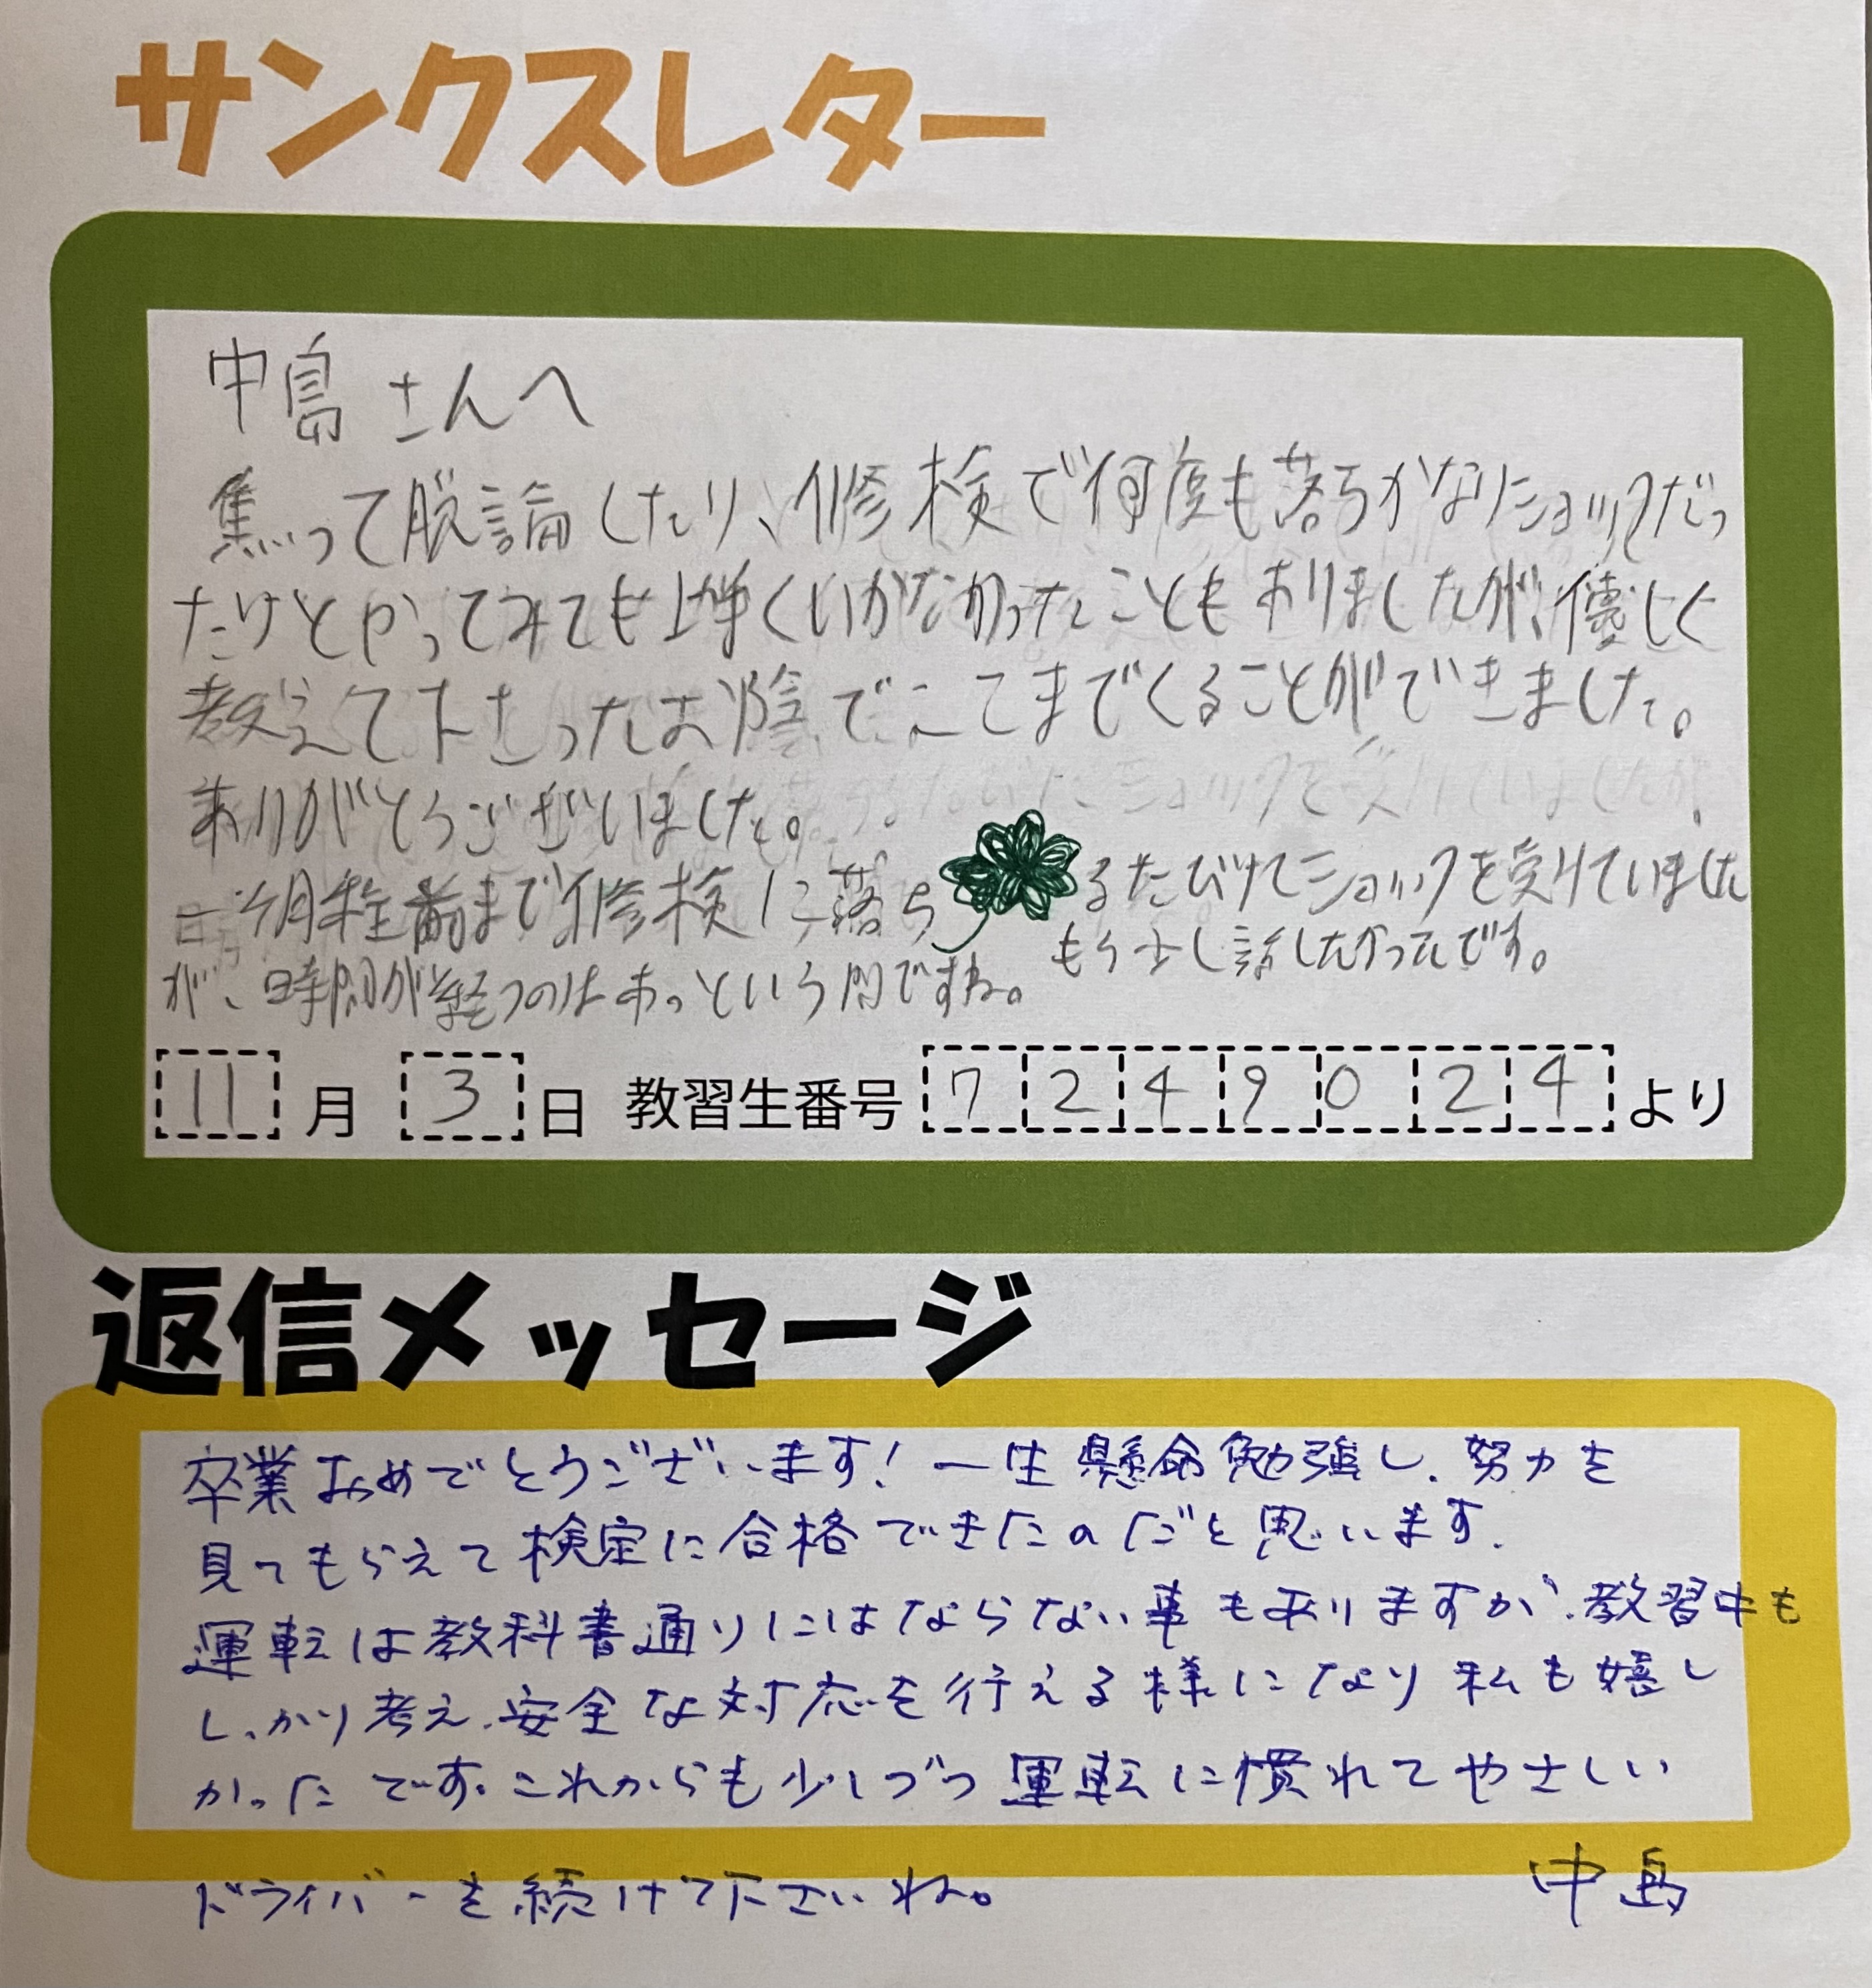 サンクスレター
中島さんへ
焦って脱論したり、修検で何度も落ちかなりショックだっ
たけどやってみても上手くいかなかったこともありましたが、優しく
教えて下さったお陰でここまでくることができました。
ありがとうございました。
前まで修検に落ちるたびにショックを受けていました
が、時間が経つのはあっという間ですね。
もう少し話したかったです。
11月3日 教習生番号 7249024 より
返信メッセージ
卒業おめでとうございます！一生懸命勉強し、努力を
見てもらえて検定に合格できたのだと思います。
運転は教科書通りにはならない事も有りますが、教習中も
しっかり考え、安全な対応を行える様になり私も嬉し
かったです。これからも少しづつ運転に慣れてやさしい
ドライバーを続けて下さいね。
中島